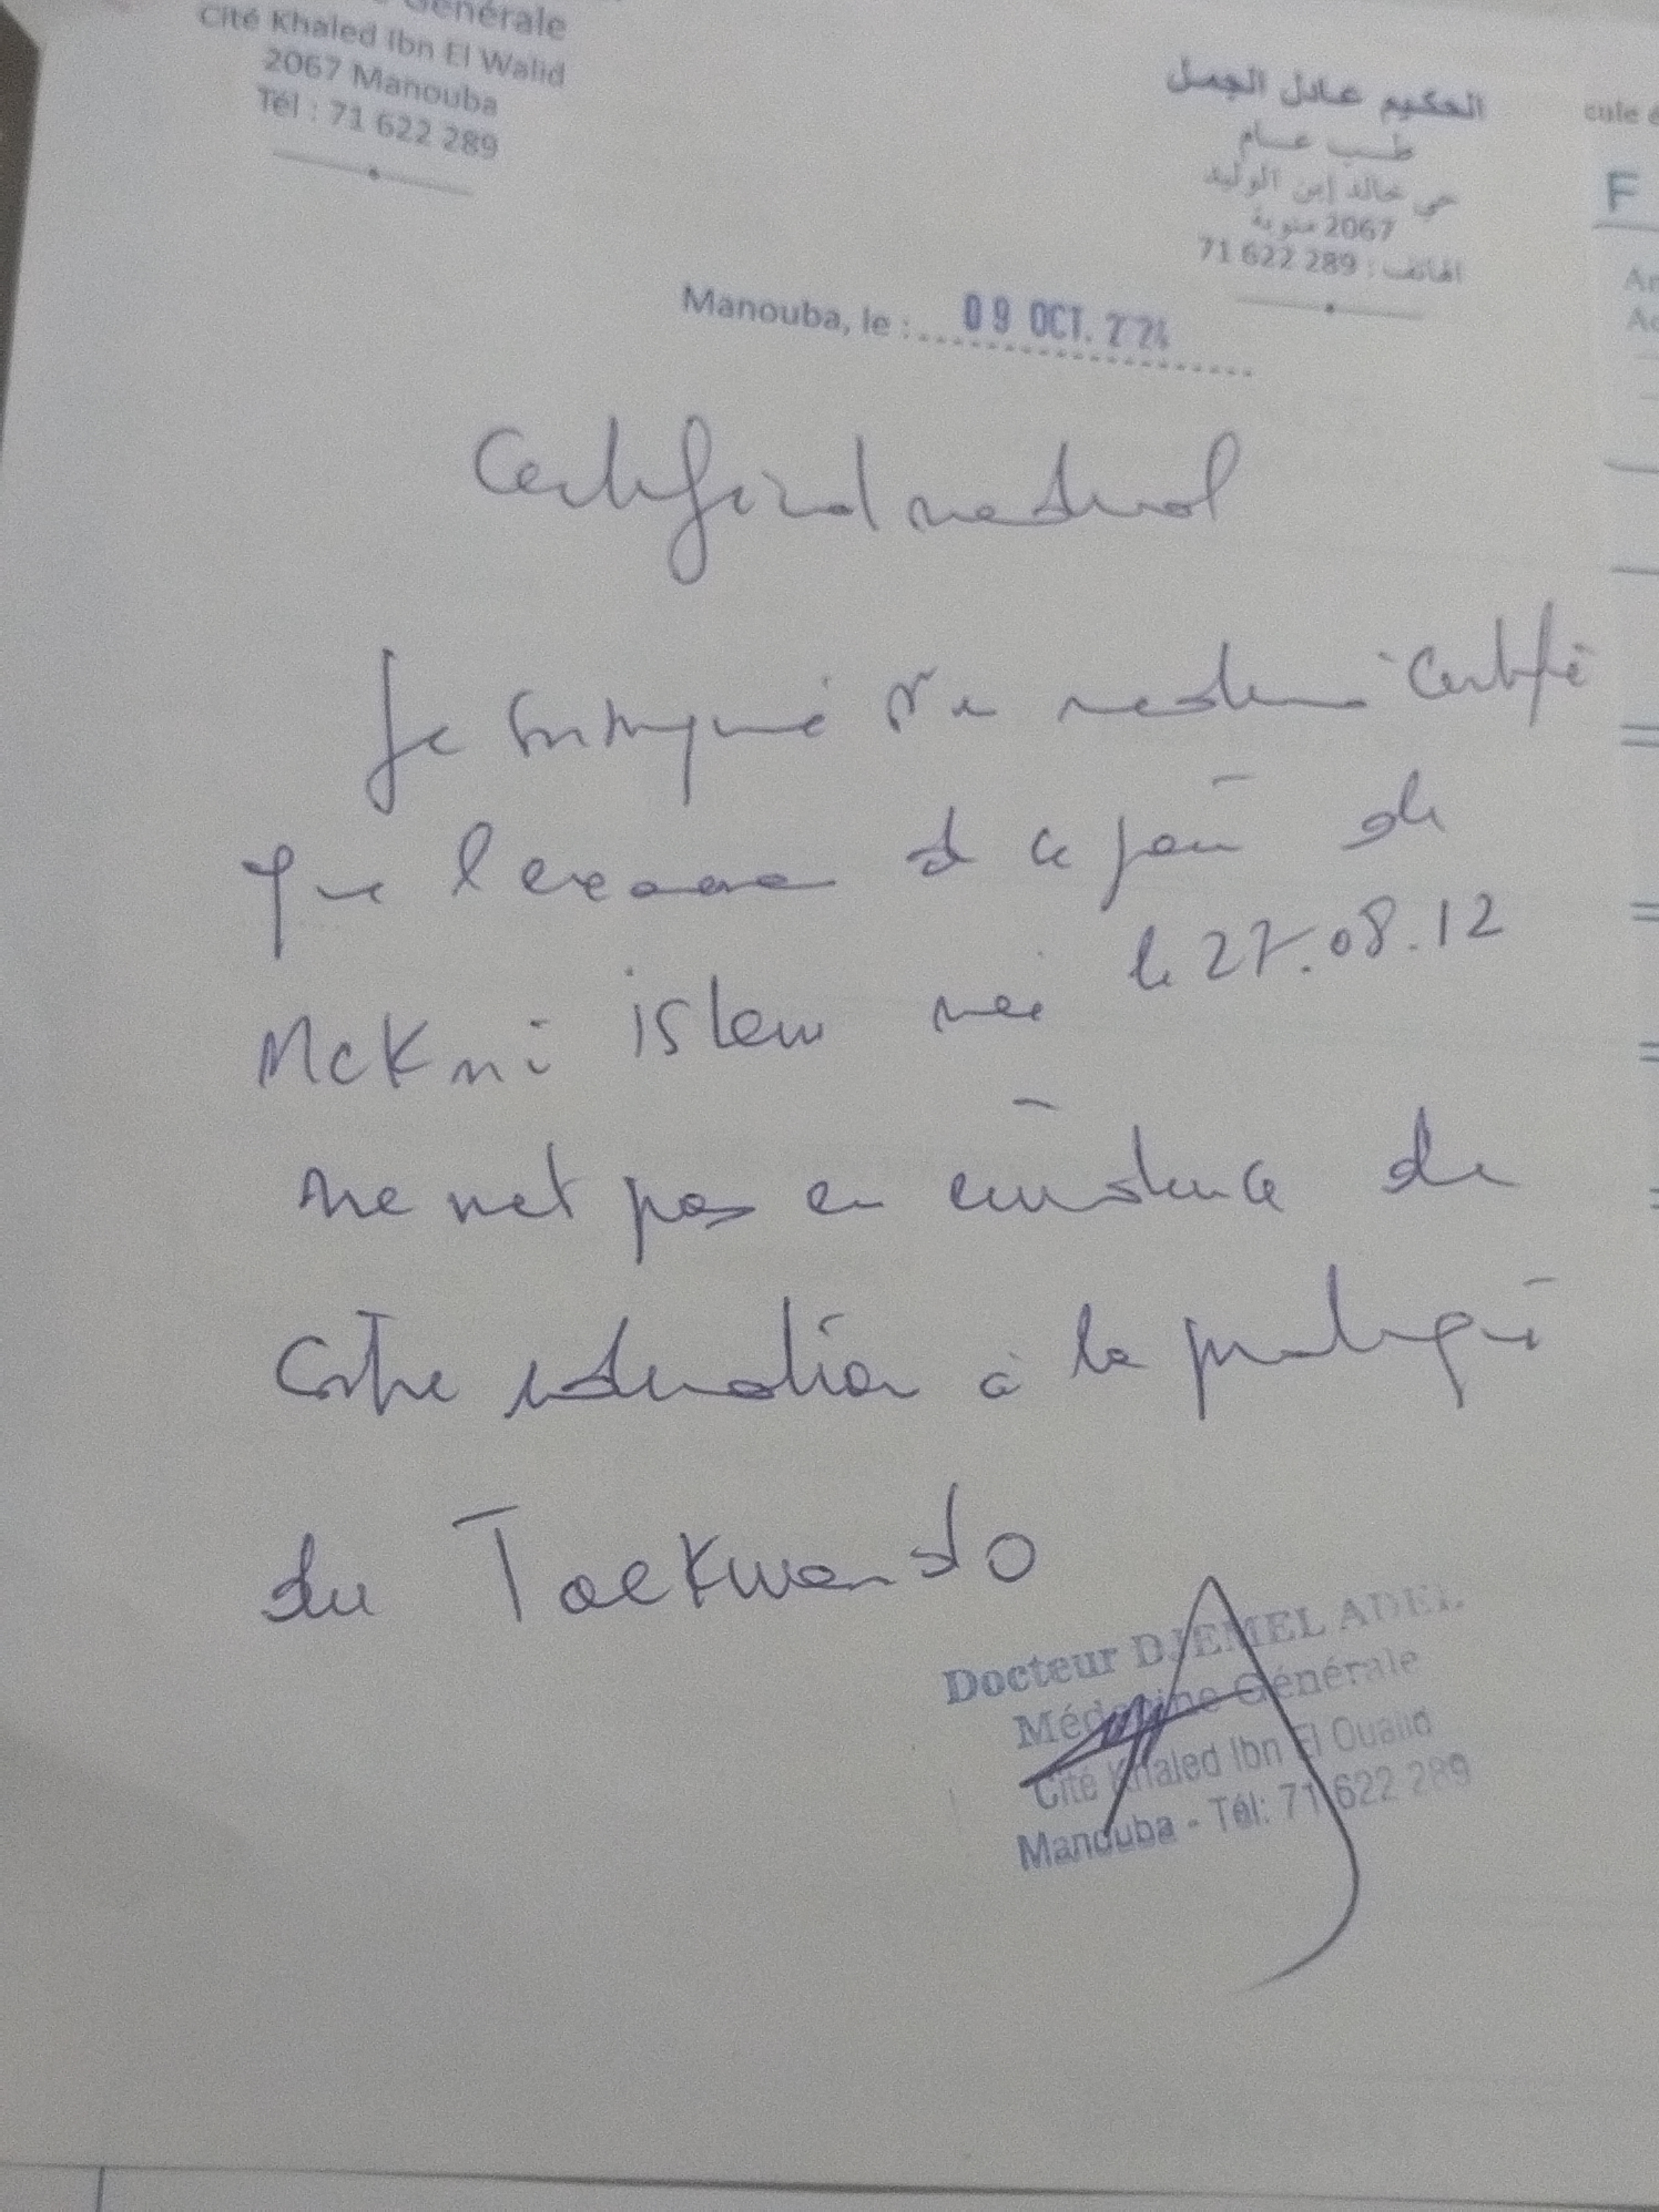 Générale
Cité Khaled Ibn El Walid
2067 Manouba
Tél : 71 622 289
الحكيم عادل الجمل
طب عام
حي خالد إبن الوليد
2067 منوبة
الهاتف : 71 622 289
cule
F
Manouba, le : 09 OCT. 2024
Certificat medical
Je soussigné Dr en medecine certifie
que l'examen de ce jour de
Mekni islem née le 27.08.12
ne met pas en évidence de
contre indication à la pratique
du Taekwondo
Docteur DJEMEL ADEL
Médecine Générale
Cité Khaled Ibn El Oualid
Manouba - Tél: 71 622 289